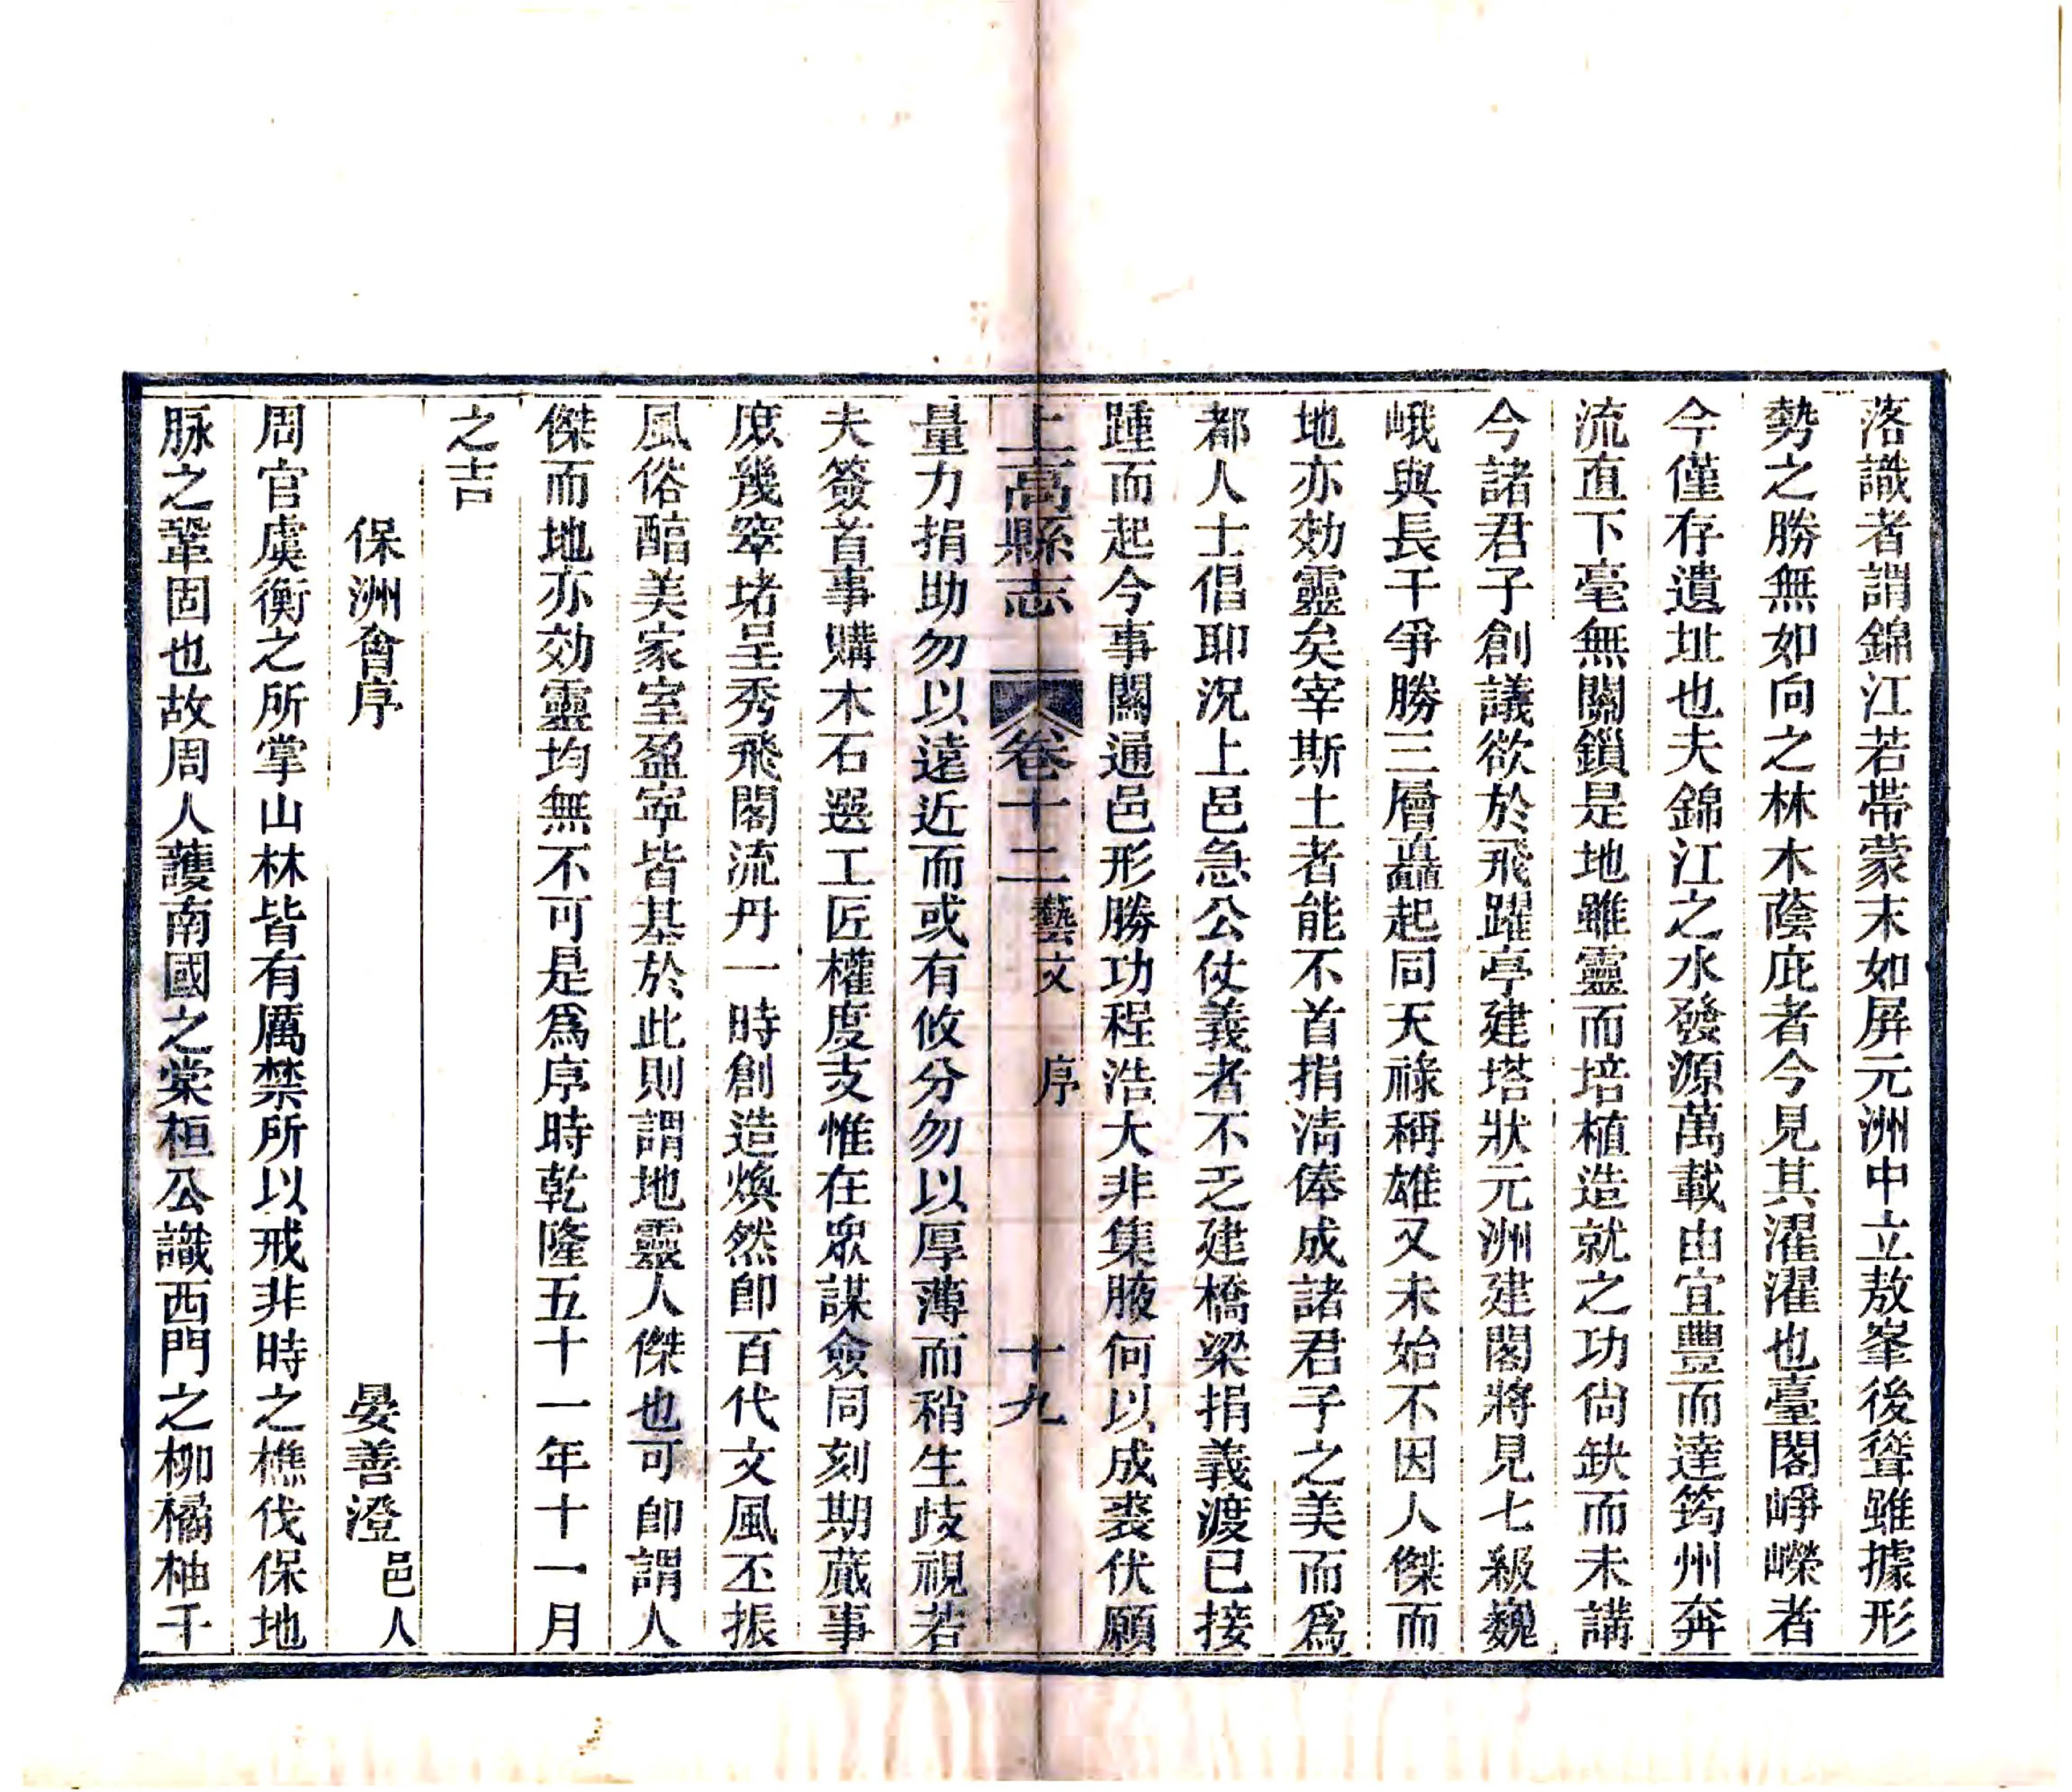 落識者謂錦江若帶蒙末如屏元洲中立敖峯後聳雖據形
勢之勝無如向之林木蔭庇者今見其濯濯也臺閣崢嶸者
今僅存遺址也夫錦江之水發源萬載由宜豐而達筠州奔
流直下毫無關鎖是地雖靈而培植造就之功尙缺而未講
今諸君子創議欲於飛躍亭建塔狀元洲建閣將見七級巍
峨與長千爭勝三層矗起同天祿稱雄又未始不因人傑而
地亦効靈矣宰斯土者能不首捐淸俸成諸君子之美而爲
都人士倡耶況上邑急公仗義者不乏建橋梁捐義渡已接
踵而起今事關通邑形勝功程浩大非集腋何以成裘伏願
上高縣志 卷十二 藝文 序 十九
量力捐助勿以遠近而或有攸分勿以厚薄而稍生歧視若
夫簽首事購木石選工匠權度支惟在眾謀僉同刻期蕆事
庶幾窣堵呈秀飛閣流丹一時創造煥然卽百代文風丕振
風俗醕美家室盈寧皆基於此則謂地靈人傑也可卽謂人
傑而地亦効靈均無不可是爲序時乾隆五十一年十一月
之吉
保洲會序 晏善澄 邑人
周官虞衡之所掌山林皆有厲禁所以戒非時之樵伐保地
脉之鞏固也故周人護南國之棠桓公識西門之柳橘柚千